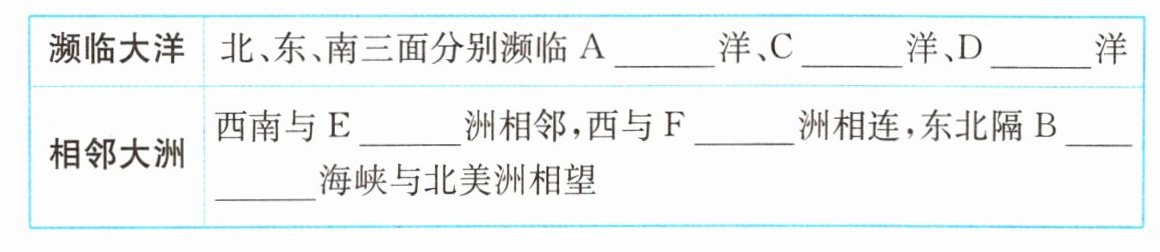 濒临大洋 北、东、南三面分别濒临 A ______洋、C ______洋、D ______洋
相邻大洲
西南与 E ______洲相邻,西与 F ______洲相连,东北隔 B ____
______海峡与北美洲相望